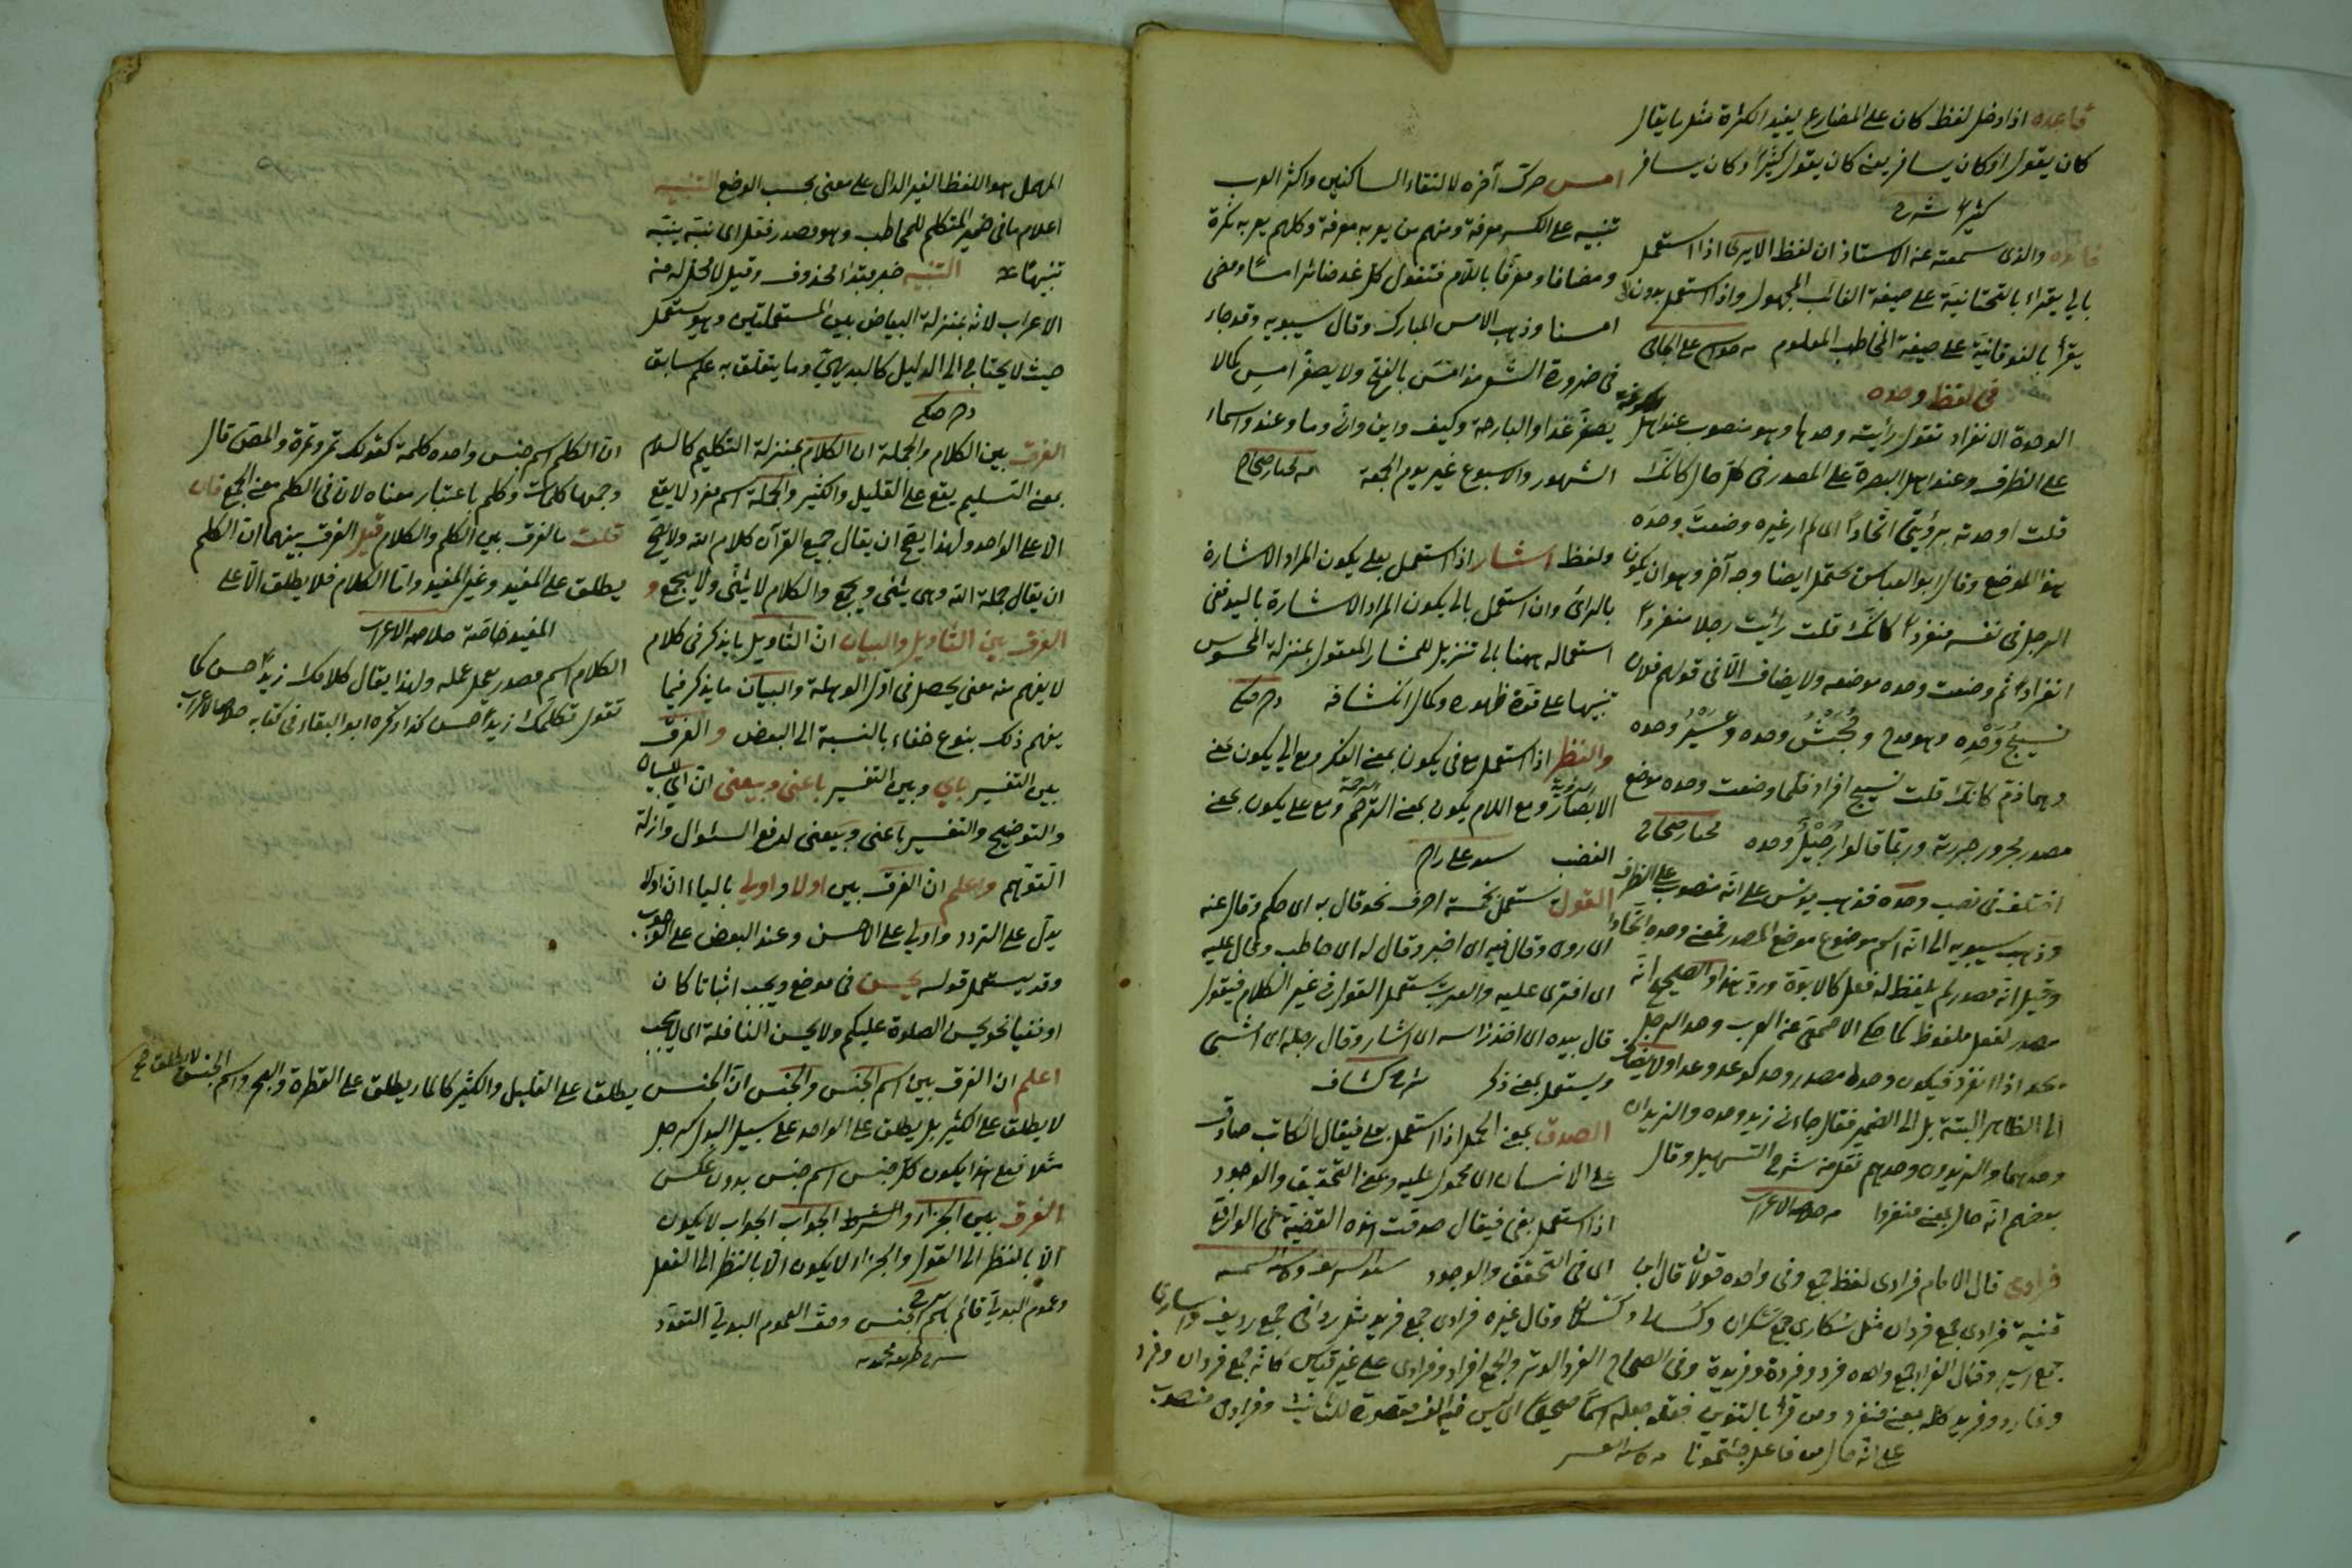 قاعده اذا دخل لفظ كان على المضارع يفيد الكثرة مثل ما يقال
كان يقول او كان يسافر يعنى كان يقول كثيرا وكان يسافر
كثيرا شرح
فائده والذى سمعته عن الاستاذ ان لفظ الا يرى اذا استعمل
بالى يقرأ بالتحتانية على صيغة الغائب المجهول واذا استعمل بدون الى
يقرأ بالفوقانية على صيغة المخاطب المعلوم
فى لفظ وحده
الوحدة الانفراد تقول رأيته وحده وهو منصوب عند اهل الكوفة
على الظرف وعند اهل البصرة على المصدر فى كل حال كانك
قلت اوحدته برؤيتى اتحادا اى لم ار غيره وضعت وحده
هذا الموضع وقال ابو العباس يحتمل ايضا وجه آخر وهو ان يكون
الرجل فى نفسه منفردا كانك قلت رأيت رجلا منفردا
انفرادا ثم وضعت وحده موضعه ولا يضاف الا فى قولهم فلان
نسيج وحده وهو مدح وجحيش وحده وعيير وحده
وهما ذم كانك قلت نسيج افراد فلما وضعت وحده موضع
مصدر مجرور جررته وربما قالوا رجيل وحده مختار صحاح
اختلف فى نصب وحده فذهب يونس على انه منصوب على الظرف
وذهب سيبويه الى انه اسم موضوع موضع المصدر فمعنى وحده اتحادا
وقيل انه مصدر لم يلفظ له فعل كالابوة ورد هذا والصحيح انه
مصدر لفعل ملفوظ كما حكى الاصمعى عن العرب وحد الرجل
يحد اذا انفرد فيكون وحد مصدر وحد كوعد وعدا ولا يضاف
الى الظاهر البتة بل الى الضمير فقال جاءنى زيد وحده والزيدان
وحدهما والزيدون وحدهم نقل من شرح التسهيل وقال
بعضهم انه حال بمعنى منفردا
امس حرك آخره لالتقاء الساكنين واكثر العرب
تنبيه على الكسر معرفة ومنهم من يعربه معرفة وكلهم يعربه نكرة
ومضافا ومعرفا باللام فتقول كل غد صائر امسا ومضى
امسنا وذهب الامس المبارك وقال سيبويه وقد جاء
فى ضرورة الشعر مذ امس بالفتح ولا يصغر امس كما لا
يصغر غدا والبارحة وكيف واين واى وما وعند واسماء
الشهور والاسبوع غير يوم الجمعة مختار صحاح
ولفظ اشار اذا استعمل بعلى يكون المراد الاشارة
بالرأى وان استعمل بالى يكون المراد الاشارة باليد ففى
استعماله ههنا بالى تنزيل للمشار المعقول بمنزلة المحسوس
تنبيها على قوة ظهوره وكمال انكشافه
والنظر اذا استعمل مع فى يكون بمعنى الفكر ومع الى يكون بمعنى
الابصار ومع اللام يكون بمعنى الترحم ومع على يكون بمعنى
الغضب
القول يستعمل بخمسة احرف نحو قال به اى حكم وقال عنه
اى روى وقال فيه اى اخبر وقال له اى خاطب وقال عليه
اى افترى عليه والعرب يستعمل القول فى غير الكلام فيقول
قال بيده اى اخذ برأسه اى اشار وقال رجله اى مشى
ويستعمل بمعنى ذكر شرح كشاف
الصدق بمعنى الحمل اذا استعمل بعلى فيقال الكاتب صادق
على الانسان اى محمول عليه وبمعنى التحقيق والوجود
اذا استعمل بفى فيقال صدقت هذه القضية فى الواقع
اى فى التحقق والوجود
فرادى قال الامام فرادى لفظ جمع وفى واحده قولان قال ابن
قتيبة فرادى جمع فردان مثل سكارى جمع سكران وكسالى وكسلان وقال غيره فرادى جمع فريد مثل ردافى جمع رديف واسارى
جمع اسير وقال الفراء جمع واحده فرد وفردة وفريدة وفى الصحاح الفرد الوتر والجمع افراد وفرادى على غير قياس كانه جمع فردان وفرد
وفارد وفريد كله بمعنى منفرد ومن قرأ بالتنوين فقد جعله اسما صحيحا اى ليس فيه الف مقصورة للتأنيث وفرادى منصوب
على انه حال من فاعل جئتمونا
المهمل هو اللفظ الغير الدال على معنى بحسب الوضع التنبيه
اعلام ما فى ضمير المتكلم للمخاطب وهو مصدر فعل اى نبه ينبه
تنبيها التنبيه خبر مبتدأ محذوف وقيل لا محل له من
الاعراب لانه بمنزلة البياض بين المستعملتين وهو يستعمل
حيث لا يحتاج الى الدليل كالبديهى وما يتعلق به علم سابق
الفرق بين الكلام والجملة ان الكلام بمنزلة التكليم كالسلام
بمعنى التسليم يقع على القليل والكثير والجملة اسم مفرد لا يقع
الا على الواحد ولهذا يصح ان يقال جميع القرآن كلام الله ولا يصح
ان يقال جملة الله وهى يثنى ويجمع والكلام لا يثنى ولا يجمع و
الفرق بين التأويل والبيان ان التأويل ما يذكر فى كلام
لا يفهم منه معنى يحصل فى اول الوهلة والبيان ما يذكر فيما
يفهم ذلك بنوع خفاء بالنسبة الى البعض والفرق
بين التفسير باى وبين التفسير باعنى وبيعنى ان اى للبيان
والتوضيح والتفسير باعنى وبيعنى لدفع السؤال وازالة
التوهم واعلم ان الفرق بين اولا واولى بالياء ان اولا
يدل على التردد واولى على الاحسن وعند البعض على الوجوب
وقد يستعمل قوله يحسن فى موضع ويجب اثباتا كان
او نفيا نحو يحسن الصلوة عليكم ولا يحسن النافلة اى لا يجب
اعلم ان الفرق بين اسم الجنس والجنس ان الجنس يطلق على القليل والكثير كالماء يطلق على القطرة والبحر واسم الجنس لا يطلق
لا يطلق على الكثير بل يطلق على الواحد على سبيل البدل كرجل
مثلا فعلى هذا يكون كل جنس اسم جنس بدون عكس
الفرق بين الجزاء والشرط الجواب الجواب لا يكون
الا بالنظر الى القول والجزاء لا يكون الا بالنظر الى الفعل
وعموم البدلى قائم باسم الجنس وصف العموم البدلى التعدد
ان الكلم اسم جنس واحده كلمة كقولك تمر وتمرة والمص قال
وجمعها كلمات وكلم باعتبار معناه لان فى الكلم معنى الجمع فان
قلت ما الفرق بين الكلم والكلام قيل الفرق بينهما ان الكلم
يطلق على المفيد وغير المفيد واما الكلام فلا يطلق الا على
المفيد خاصة
الكلام اسم مصدر يعمل عمله ولهذا يقال كلامك زيدا حسن كما
تقول تكلمك زيدا حسن كذا ذكره ابو البقاء فى كتابه